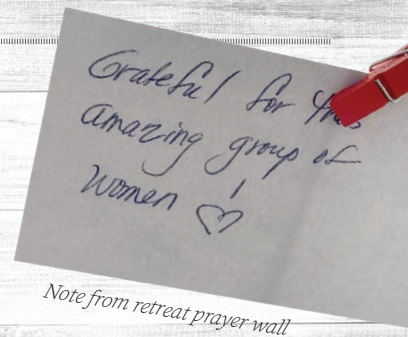 Grateful for this
amazing group of
women! ♡
Note from retreat prayer wall